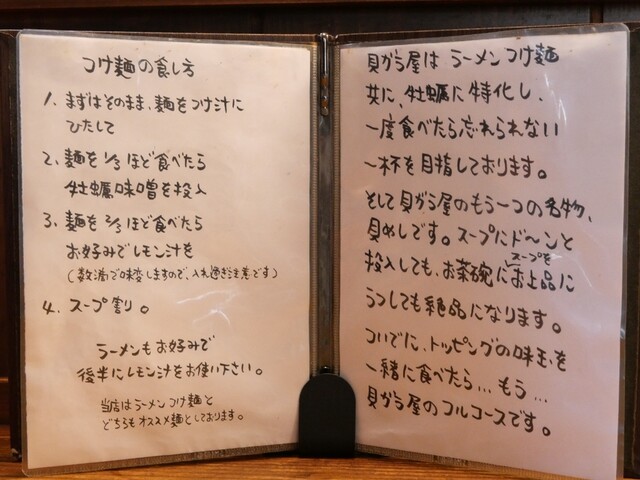 つけ麺の食し方
1. まずはそのまま、麺をつけ汁に
ひたして
2. 麺を1/3ほど食べたら
牡蠣味噌を投入
3. 麺を2/3ほど食べたら
お好みでレモン汁を
(数滴で味変しますので、入れ過ぎ注意です)
4. スープ割り。
ラーメンもお好みで
後半にレモン汁をお使い下さい。
当店はラーメンつけ麺と
どちらもオススメ麺としております。
貝がら屋は ラーメンつけ麺
共に、牡蠣に特化し、
一度食べたら忘れられない
一杯を目指しております。
そして貝がら屋のもう一つの名物、
貝めしです。スープにド〜ンと
投入しても、お茶碗にスープをお上品に
うつしても絶品になります。
ついでに、トッピングの味玉を
一緒に食べたら...もう...
貝がら屋のフルコースです。